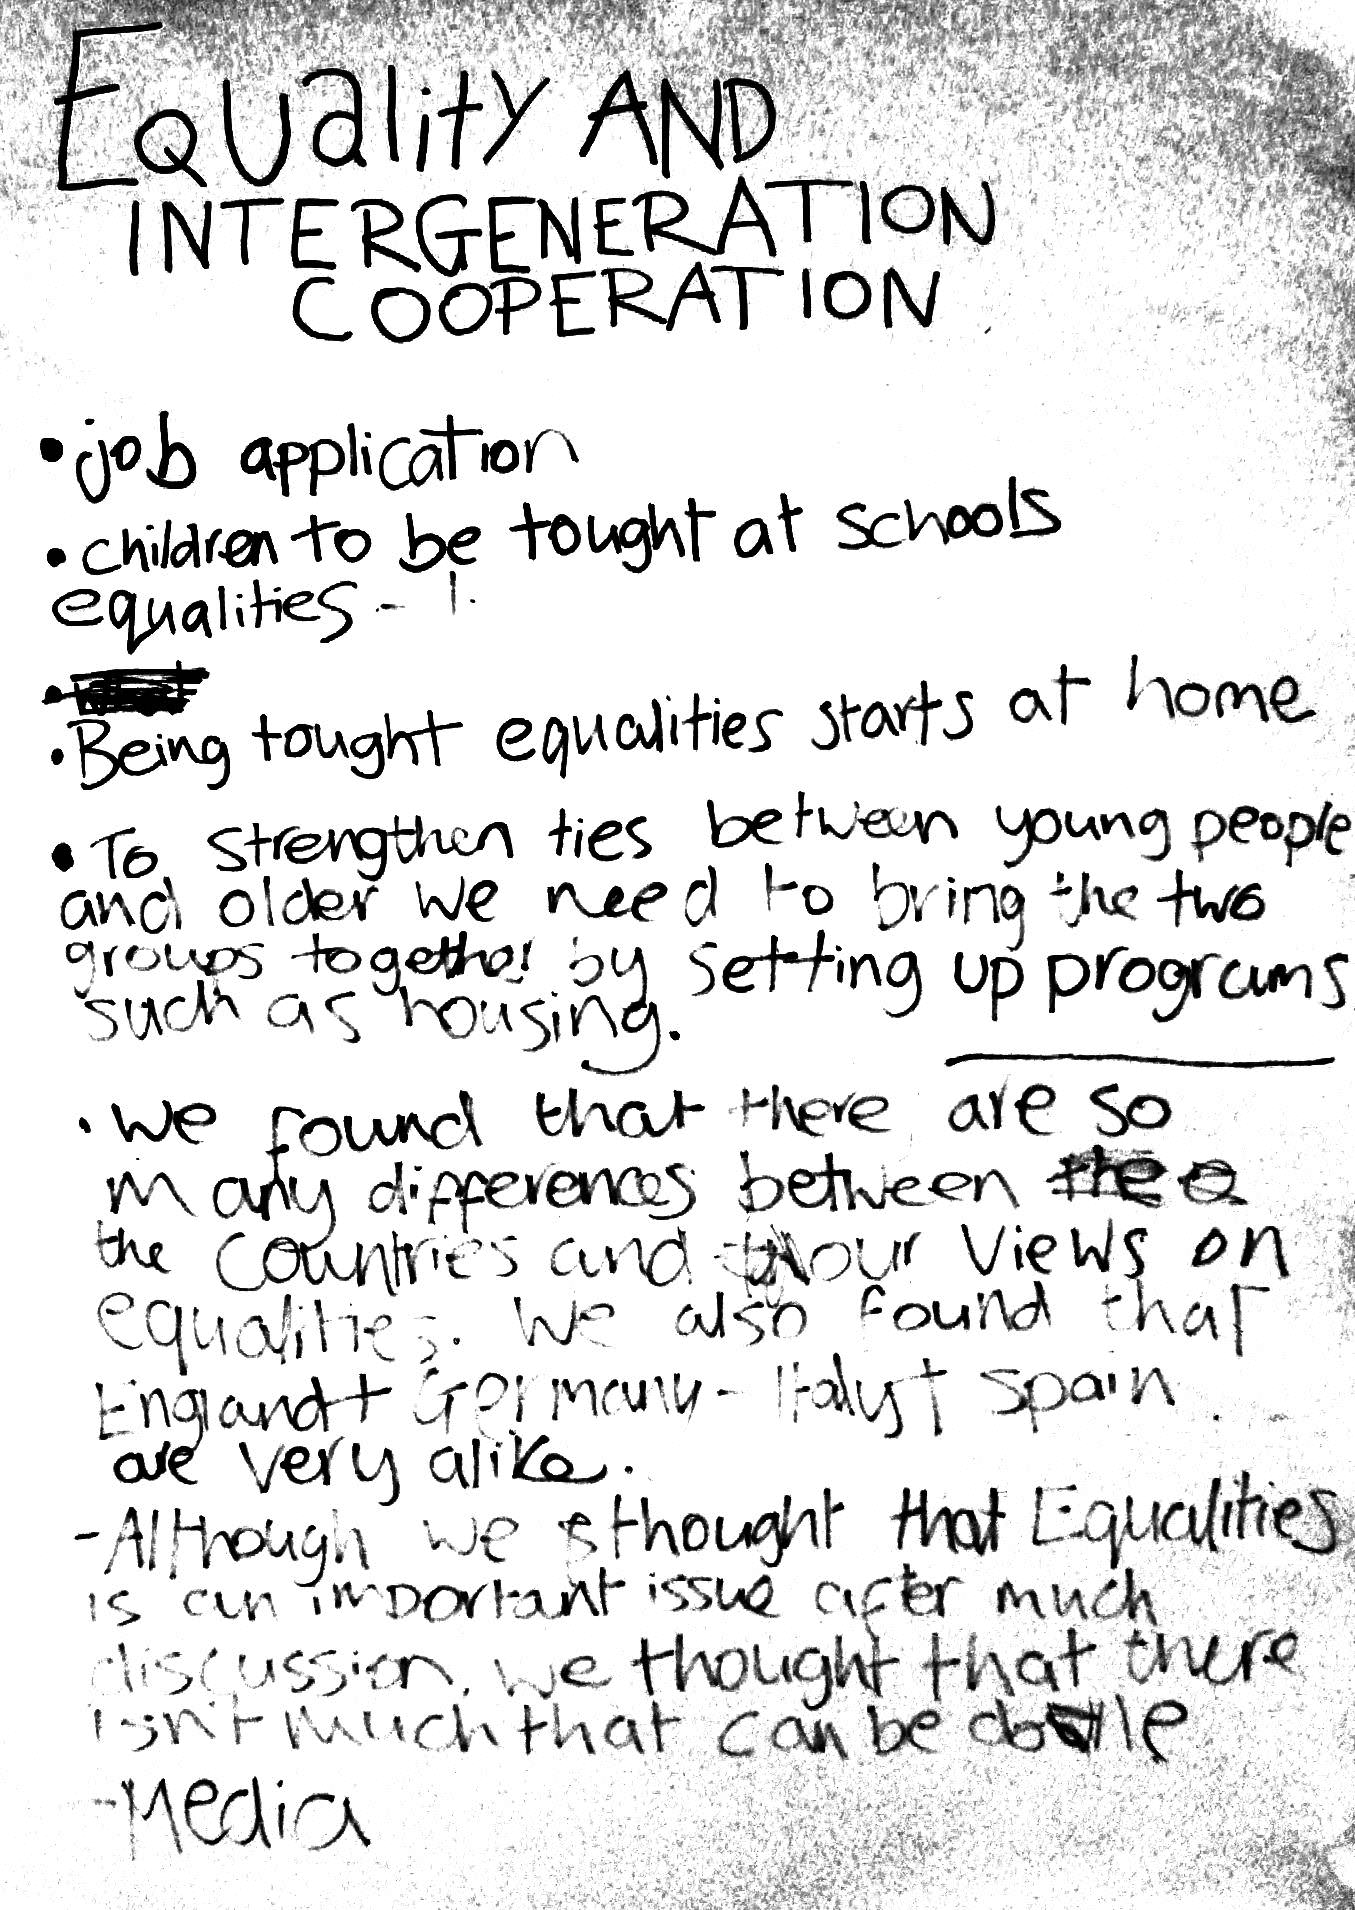 Equality AND
INTERGENERATION
COOPERATION
• job application
• children to be tought at schools
equalities - !
•
• Being tought equalities starts at home
• To strengthen ties between young people
and older we need to bring the two
groups together by setting up programs
such as housing.
• We found that there are so
many differences between the
the countries and our views on
equalities. We also found that
England + Germany - Italy + Spain
are very alike.
- Although we thought that Equalities
is an important issue after much
discussion, we thought that there
isn't much that can be
- Media